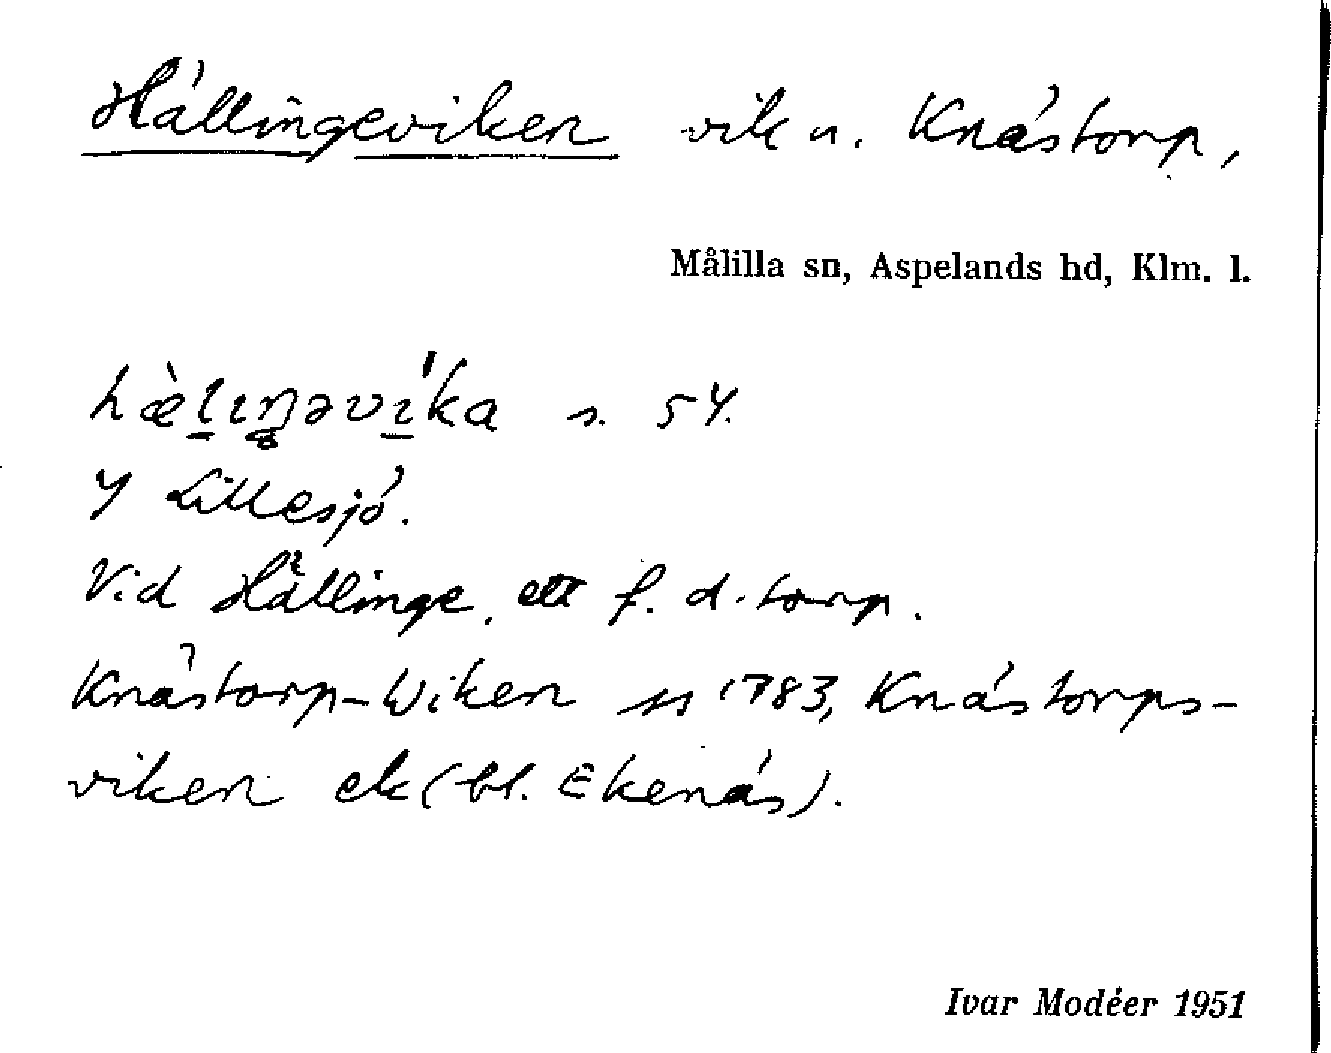 Hällingeviken vik u. Knästorp,
Målilla sn, Aspelands hd, Klm. l.
s. 54.
I Lillesjö.
Vid Hällinge, ett f. d. torp.
Knästorp-Wiken 1783, Knästorps-
viken ek (bl. Ekenäs).
Ivar Modéer 1951